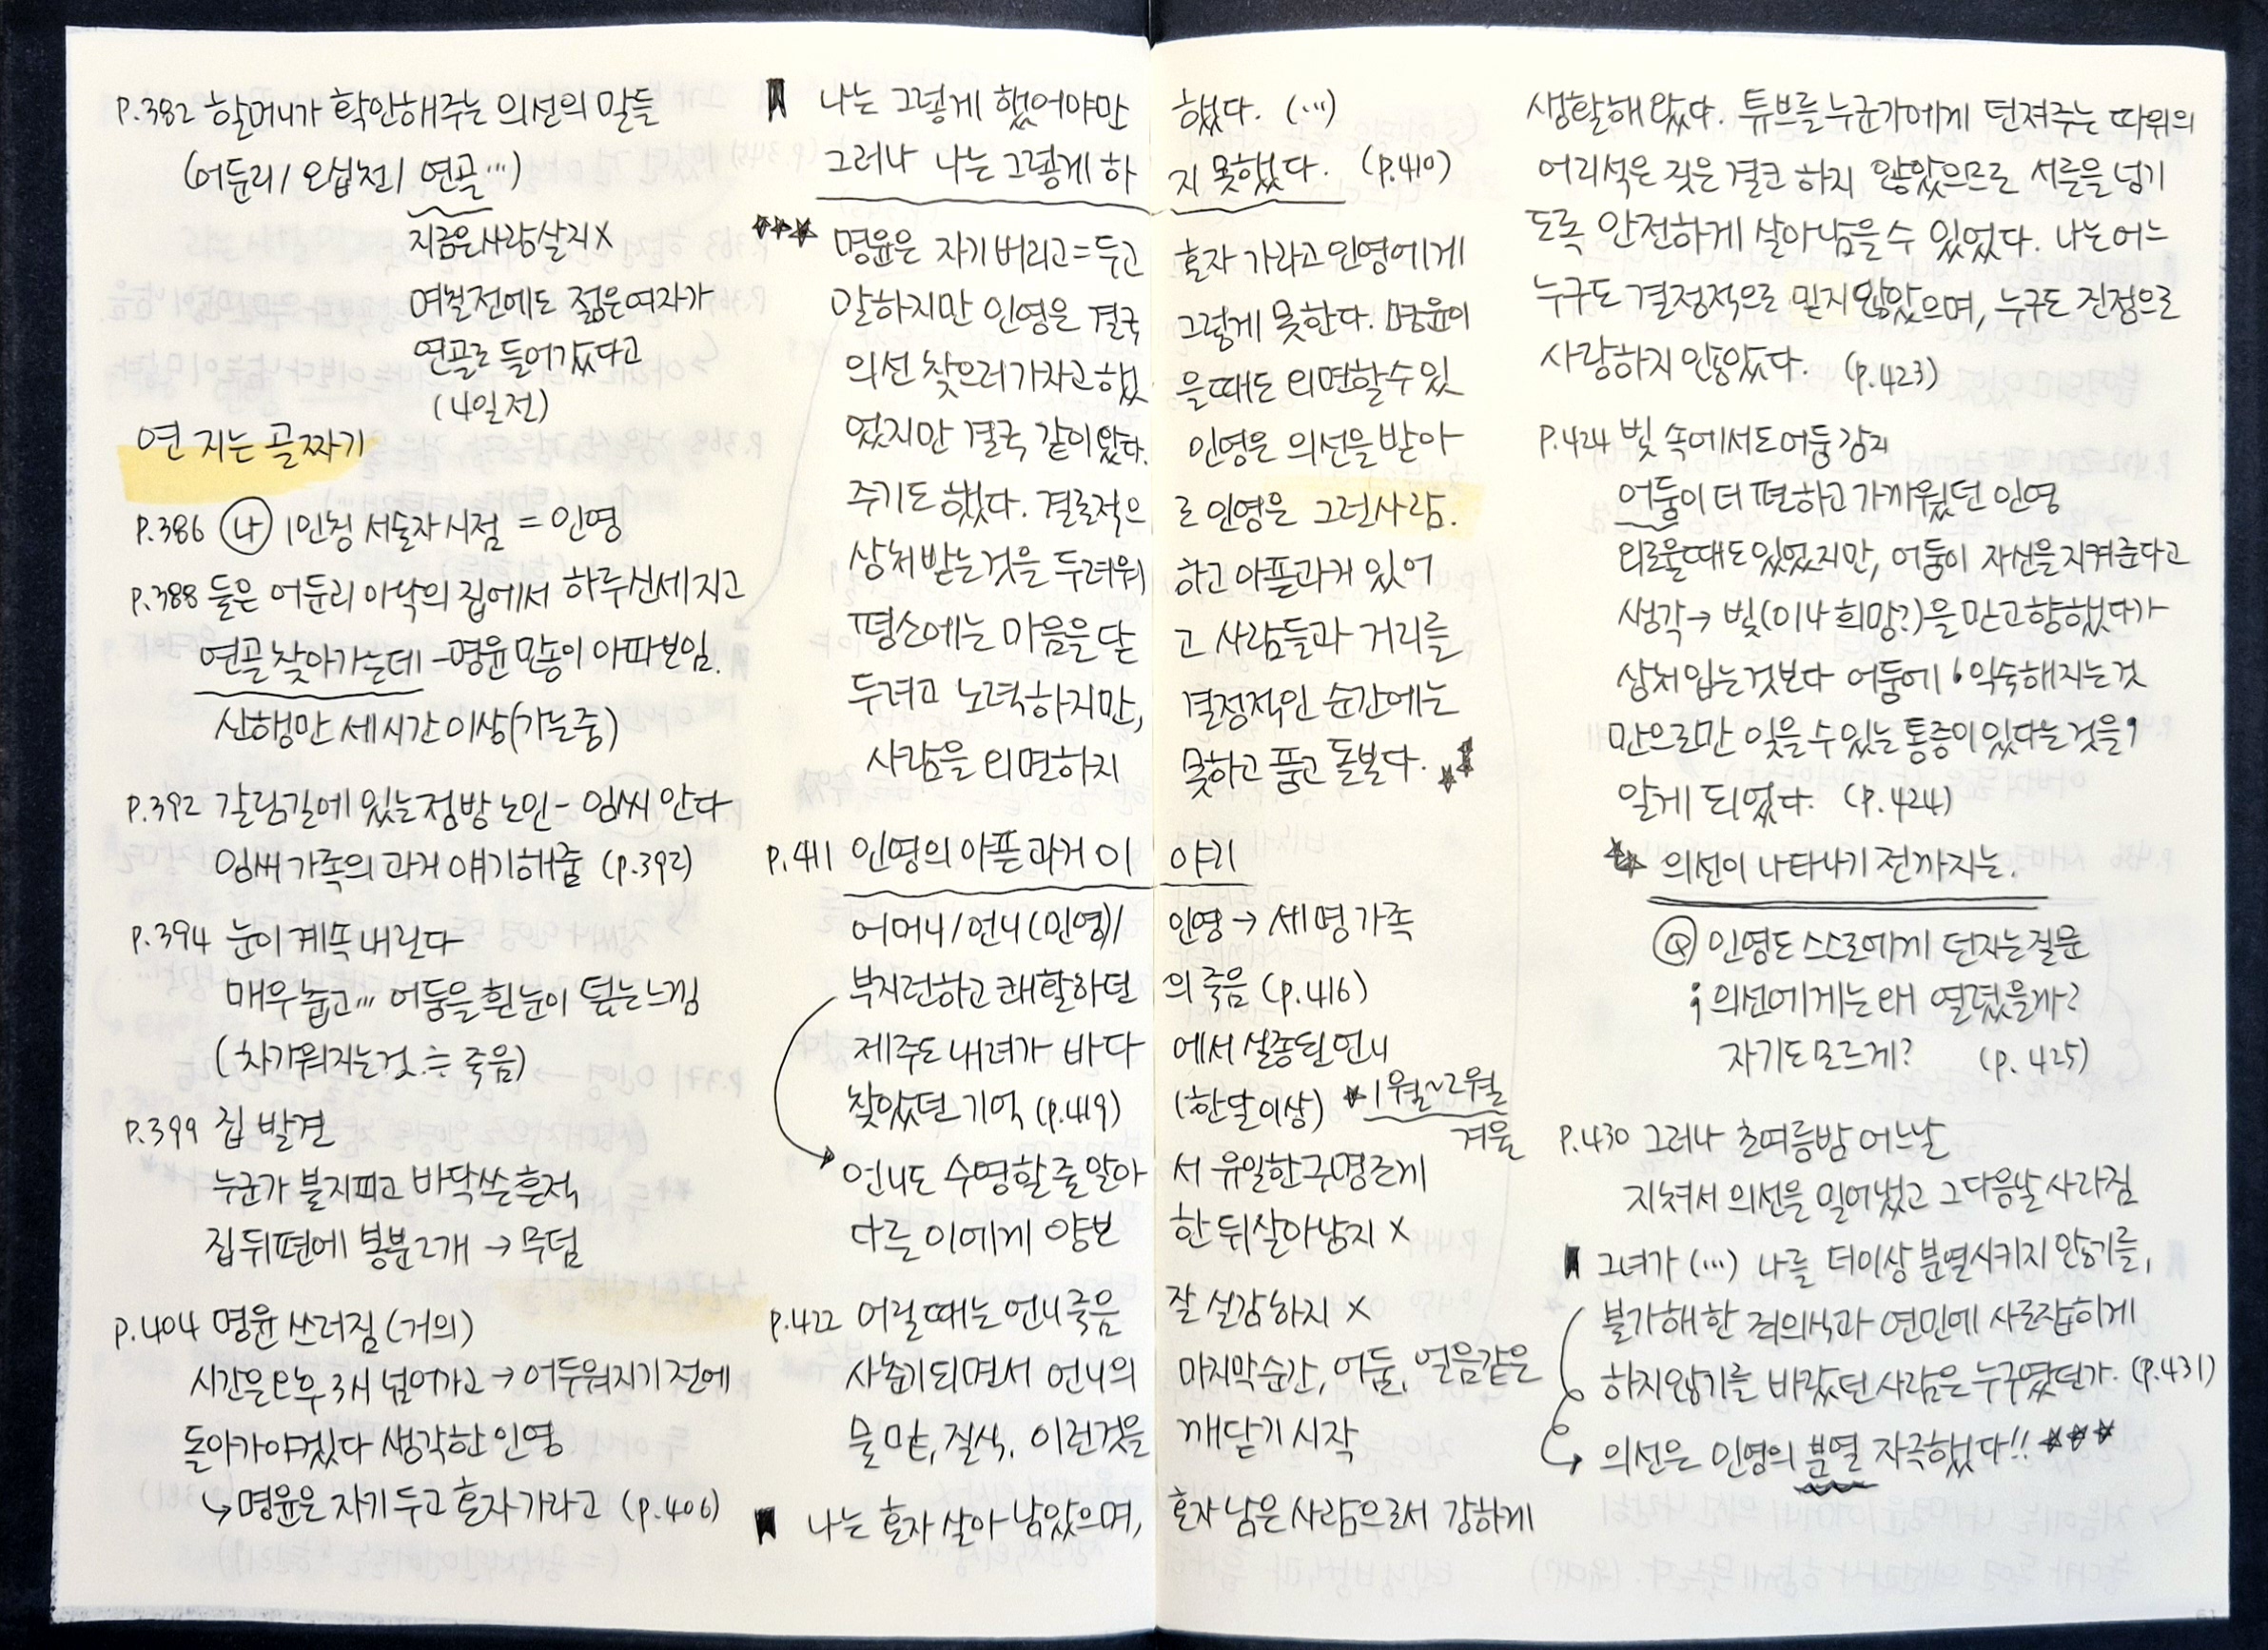 P.382 할머니가 확인해주는 의선의 말들
(어둔리/오십천/연골…)
지금은 사람 살지 X
며칠 전에도 젊은 여자가
연골로 들어갔다고
(4일 전)
연 지는 골짜기
P.386 나 1인칭 서술자 시점 = 인영
P.388 둘은 어둔리 아낙의 집에서 하루 신세 지고
연골 찾아가는데 - 명윤 많이 아파 보임.
산행만 세 시간 이상(가는 중)
P.392 갈림길에 있는 점방 노인 - 임씨 안다
임씨 가족의 과거 얘기해줌 (P.392)
P.394 눈이 계속 내린다
매우 춥고… 어둠을 흰 눈이 덮는 느낌
(차가워지는 것 ≒ 죽음)
P.399 집 발견
누군가 불 지피고 바닥 쓴 흔적,
집 뒤편에 봉분 2개 → 무덤
P.404 명윤 쓰러짐 (거의)
시간은 오후 3시 넘어가고 → 어두워지기 전에
돌아가야겠다 생각한 인영
↳ 명윤은 자기 두고 혼자 가라고 (P.406)
나는 그렇게 했어야만 했다. (…)
그러나 나는 그렇게 하지 못했다. (P.410)
명윤은 자기 버리고=두고 혼자 가라고 인영에게
말하지만 인영은 결국 그렇게 못한다. 명윤이
의선 찾으러 가자고 했을 때도 외면할 수 있
었지만 결국 같이 왔다. 인영은 의선을 받아
주기도 했다. 결론적으로 인영은 그런 사람.
상처받는 것을 두려워하고 아픈 과거 있어
평소에는 마음을 닫고 사람들과 거리를
두려고 노력하지만, 결정적인 순간에는
사람을 외면하지 못하고 품고 돌본다.
P.411 인영의 아픈 과거 이야기
어머니/언니(민영)/인영 → 세 명 가족
부지런하고 쾌활하던 의 죽음 (P.416)
제주도 내려가 바다에서 실종된 언니
찾았던 기억 (P.419) (한 달 이상) ★1월~2월
겨울
언니도 수영할 줄 알아서 유일한 구명조끼
다른 이에게 양보한 뒤 살아남지 X
P.422 어릴 때는 언니 죽음 잘 실감하지 X
사춘기 되면서 언니의 마지막 순간, 어둠, 얼음 같은
물 맛, 질식, 이런 것을 깨닫기 시작
나는 혼자 살아남았으며, 혼자 남은 사람으로서 강하게
생활해 왔다. 튜브를 누군가에게 던져주는 따위의
어리석은 짓은 결코 하지 않았으므로 서른을 넘기
도록 안전하게 살아남을 수 있었다. 나는 어느
누구도 결정적으로 믿지 않았으며, 누구도 진정으로
사랑하지 않았다. (P.423)
P.424 빛 속에서도 어둠 감지
어둠이 더 편하고 가까웠던 인영
외로울 때도 있었지만, 어둠이 자신을 지켜준다고
생각 → 빛(이나 희망?)을 믿고 향했다가
상처 입는 것보다 어둠에 '익숙해지는 것
만으로만 잊을 수 있는 통증이 있다는 것을'
알게 되었다. (P.424)
의선이 나타나기 전까지는.
Q 인영도 스스로에게 던지는 질문
; 의선에게는 왜 열렸을까?
자기도 모르게? (P.425)
P.430 그러나 초여름밤 어느 날
지쳐서 의선을 밀어냈고 그다음날 사라짐
그녀가 (…) 나를 더 이상 분열시키지 않기를,
불가해한 죄의식과 연민에 사로잡히게
하지 않기를 바랐던 사람은 누구였던가. (P.431)
의선은 인영의 분열 자극했다!! ★★★